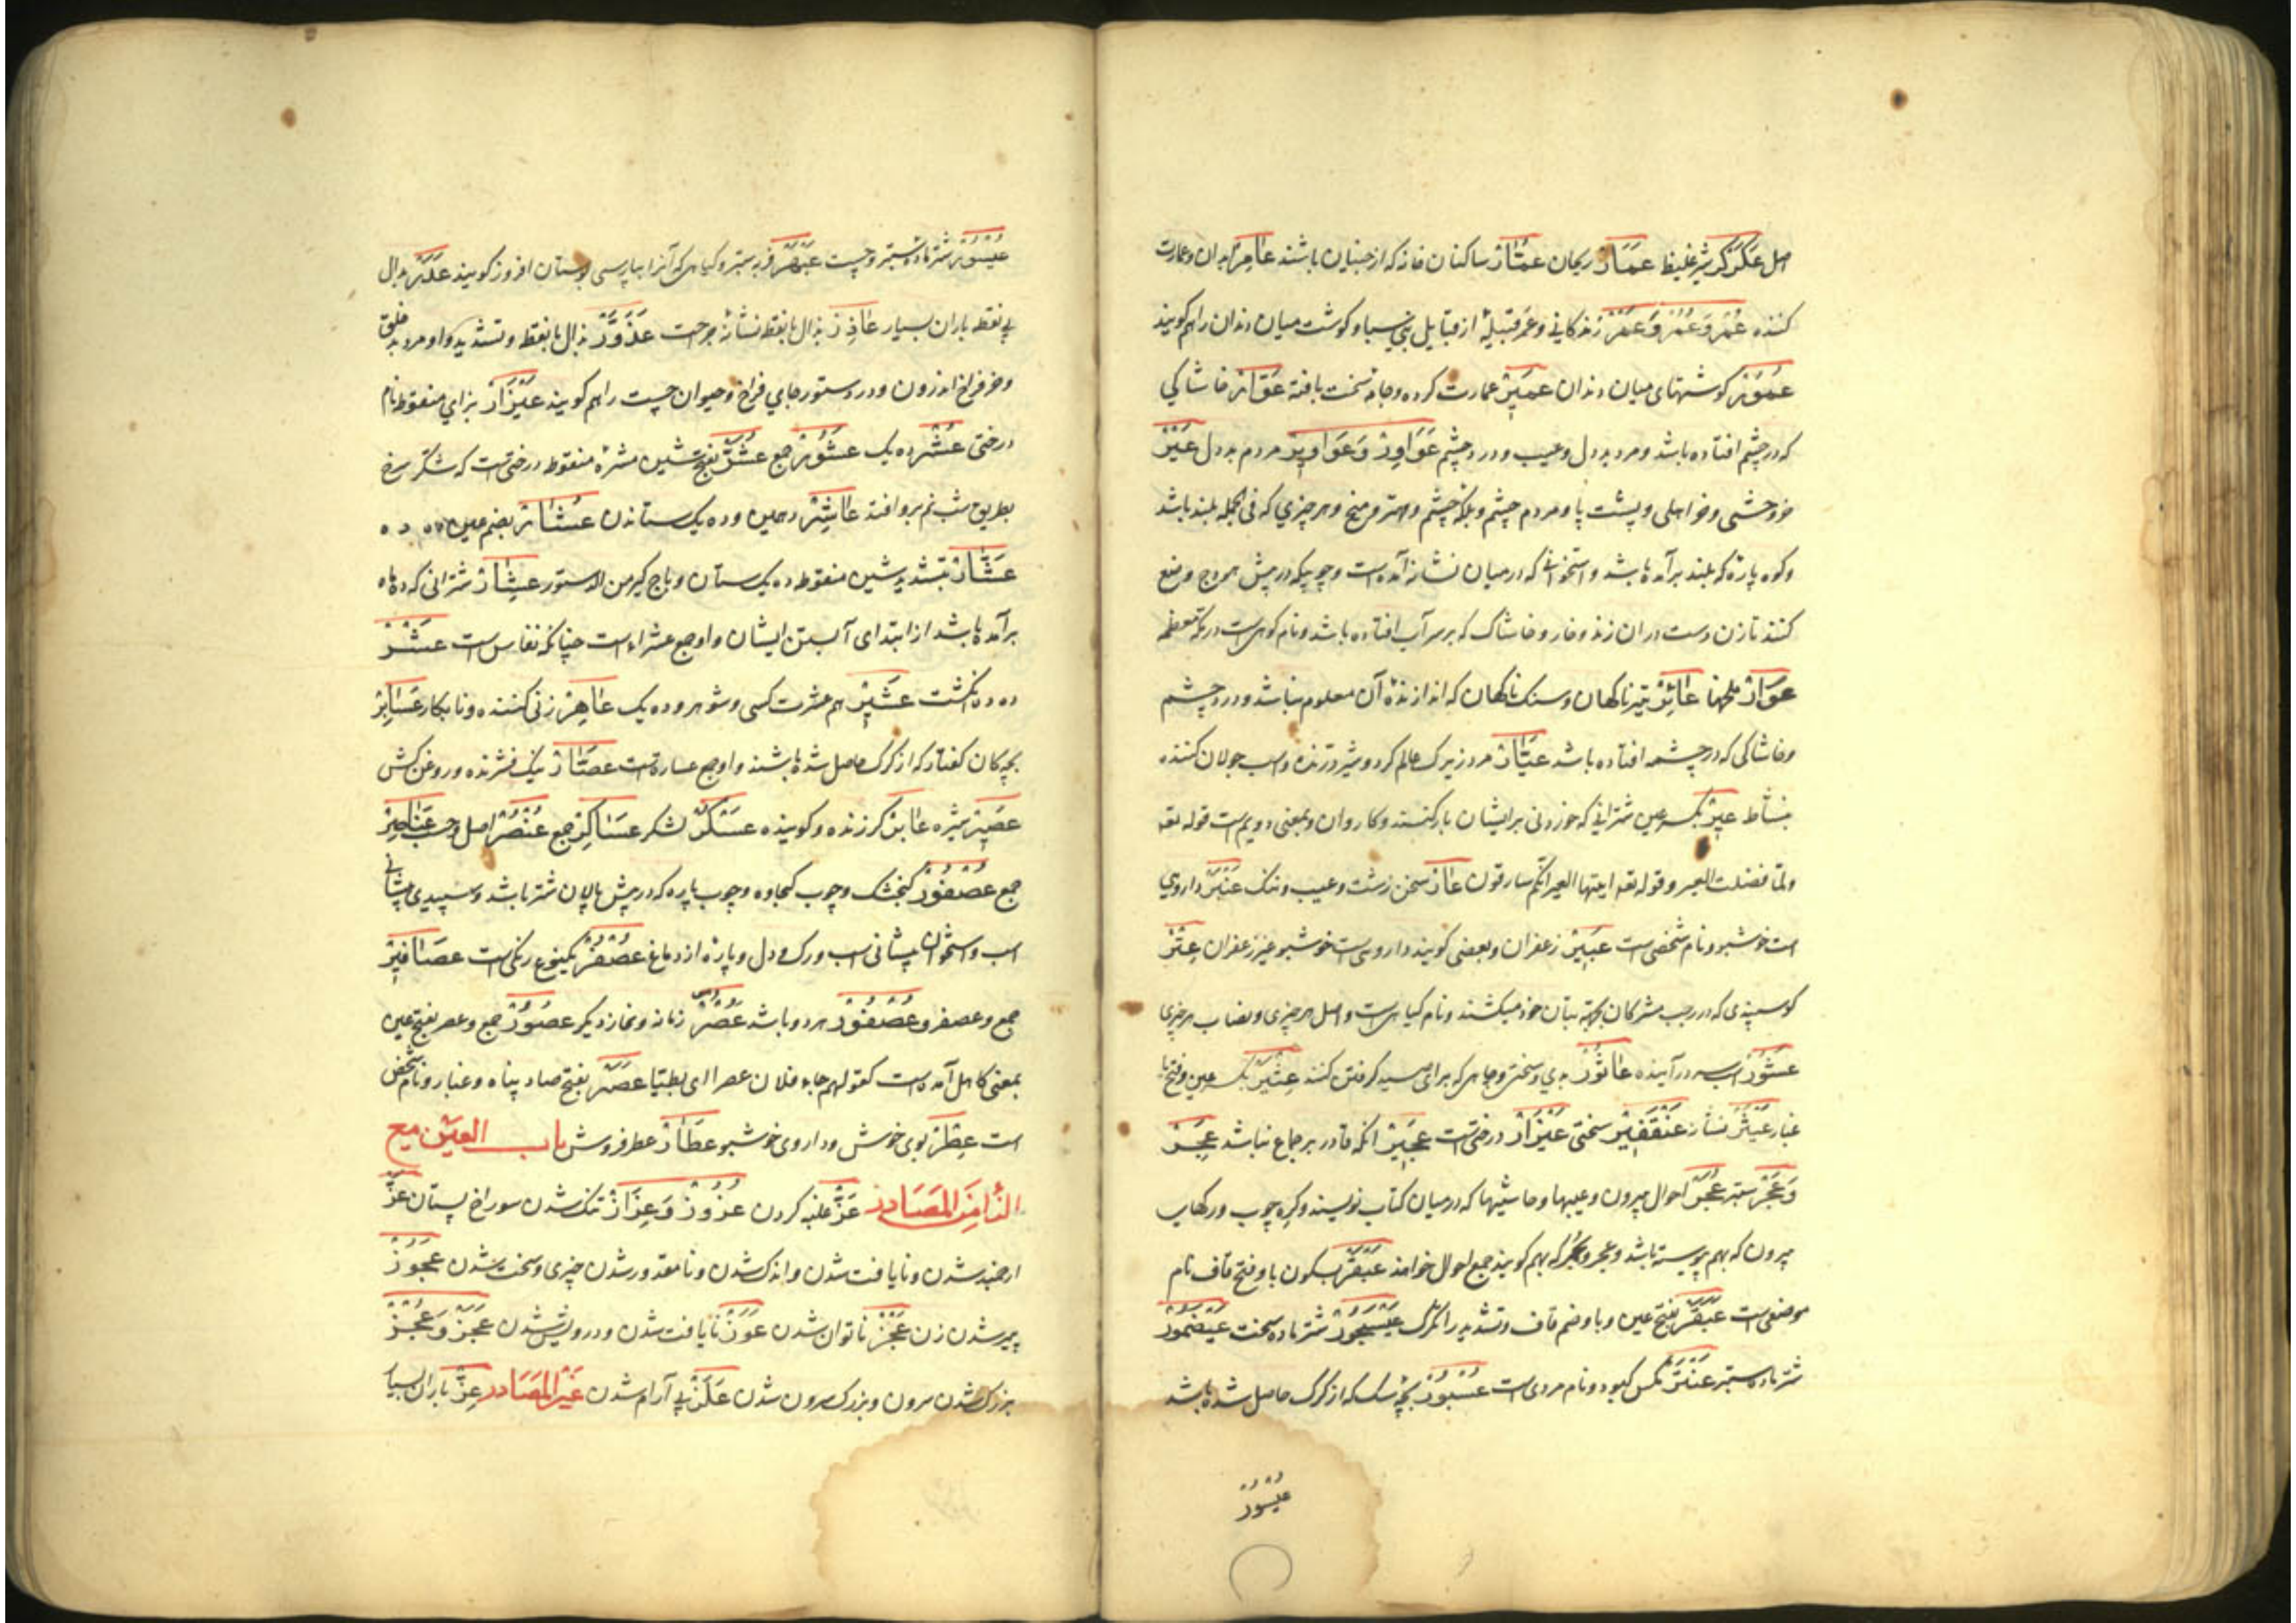 اصل عَکَرْکَرْ شیر غلیظ عَمَارْ ریحان عُمَّارْ ساکنان خانه که از جنیان باشند عَامِرْ ابدان و عمارت
کننده عُمْر وَ عُمُرْ وَ عَمْرْ زندگانی و عمر قبیلهٔ از قبایل بنی سبا و گوشت میان دندان را هم گویند
عُمُوْرْ گوشتهای میان دندان عَمِیْرْ عمارت کرده و جامه سخت بافته عَوَّارْ خاشاکی
که در چشم افتاده باشد و مرد بددل و عیب و درد چشم عَوَاوِرْ وَ عَوَاوِیْرْ مردم بددل عَیْرْ
خر وحشی و خر اهلی و پشت پا و مردم چشم و پلک چشم و مهتر و میخ و هر چیزی که فی الجمله بلند باشد
و کوه پارهٔ که بلند برآمده باشد و استخوانی که در میان نشانه آمده است و چوبیکه در پیش هودج وضع
کنند تا زن دست در ان زند و خار و خاشاک که بر سر آب افتاده باشد و نام کوهی است در مکه معظمه
عَوَارْ ملخها عَائِرْ تیر ناکهان و سنک ناکهان که اندازندهٔ آن معلوم نباشد و درد چشم
و خاشاکی که در چشمه افتاده باشد عَیَّارْ مرد زیرک عالم کرد و شیر درنده و اسب جولان کننده
بنشاط عِیْرْ بکسر عین شترانی که خوردنی بر ایشان بار کنند و کاروان و بمعنی دویم است قوله تعه
ولمّا فصلت العیر و قوله تعه ایتها العیر انکم لسارقون عَارْ سخن زشت و عیب و ننک عَنْبَرْ داروی
است خوشبو و نام شخصی است عَبِیْرْ زعفران و بعضی گویند داروی است خوشبو غیر زعفران عِتْرْ
کوسپندی که در رجب مشرکان بجهة بتان خود میکشند و نام کیاهی است و اصل هر چیزی و نصاب هر چیزی
عَثُوْرْ اسب بسر درآینده عَاثُوْرْ بدی و سختی و چاهی که برای صید کرفتن کنند عِثْیَرْ بکسر عین و فتح یا
غبار عَیْثَرْ نشان عَنْقَفِیْرْ سختی عَیْزَارْ درختی است عَجِیْرْ انکه قادر بر جماع نباشد عَجِرْ
وَ عَجُرْ ستبر عُجَرْ احوال بیرون و عیبها و حاشیها که در میان کتاب نویسند و کره چوب و رکهای
بیرون که بهم پیوسته باشد و عجر و بجر که بهم کویند جمیع احوال خواهند عَبْقَرْ بسکون با و فتح قاف نام
موضعی است عَبَقُرّْ بفتح عین و با و ضم قاف و تشدید را تکرک عَیْسَجُوْرْ شتر ماده سخت عَیْضَمُوْرْ
شتر ماده ستبر عَنْتَرْ مکس کبود و نام مردی است عُسْبُوْرْ بچه سک که از کرک حاصل شده باشد
عُیْسُوْرْ
عُیْسُوْرْ شتر ماده ستبر و چست عَبْهَرْ فربه ستبر و کیاهی که آنرا بپارسی بوستان افروز کویند عَدَرْ بدال
بی نقطه باران بسیار عَاذِرْ بذال با نقطه نشانهٔ جراحت عَذَوَّرْ بذال با نقطه و تشدید واو مرد بدخلق
و خر فراخ اندرون و در دستور جای فراخ و حیوان چست را هم کویند عَیْزَارْ بزای منقوط نام
درختی عُشْرْ ده یک عُشُوْرْ جمع عُشَرْ بفتح شین مشرهٔ منقوط درختی است که شکر سرخ
بطریق شب نم برو افتد عَاشِرْ دهمین و ده یک ستاندن عُشَارْ بضم عین ده ده
عَشَّارْ بتشدید شین منقوط ده یک ستان و باج کیر من الدستور عِشَارْ شترانی که ده ماه
برآمده باشد از ابتدای آبستن ایشان و او جمع عشراء است چنانکه نفاس است عَشْرْ
ده ده انکشت عَشِیْرْ هم عشرت کسی و شوهر و ده یک عَاهِرْ زنی کننده و نابکار عَسَابِرْ
بچه کان کفتار که از کرک حاصل شده باشند و او جمع عسباره است عَصَّارْ نیک فشرنده و روغن کش
عَصِیْرْ شیره عَابِرْ گذرنده و کوینده عَسْکَرْ لشکر عَسَاکِرْ جمع عُنْصُرْ اصل و حسب عَنَاصِرْ
جمع عُصْفُوْرْ کنجشک و چوب کجاوه و چوب پاره که در پیش پالان شتر باشد و سپیدی پیشانی
اسب و استخوان پیشانی اسب و رک دل و پارهٔ از دماغ عُصْفُرْ یکنوع رنکی است عَصَافِیْرْ
جمع و عصفر و عُصْفُوْرْ هر دو باشد عَصْرْ زمانه و نماز دیکر عُصُوْرْ جمع و عصر بفتح عین
بمعنی کاهل آمده است کقولهم جاء فلان عصرا ای بطیئا عَصَرْ بفتح صاد پناه و غبار و نام شخصی
است عِطْرْ بوی خوش و داروی خوشبو عَطَّارْ عطر فروش باب العین مع
الزّا مِن المَصَادر عَزّْ غلبه کردن عُزُوْزْ وَ عِزَازْ تنک شدن سوراخ پستان عِزّْ
ارجمند شدن و نایافت شدن و اندک شدن و نامقدور شدن چیزی و سخت شدن عُجُوْزْ
پیر شدن زن عَجْزْ ناتوان شدن عَوَزْ نایافت شدن و درویش شدن عَجَزْ وَ عُجْزْ
بزرک شدن سرون و بزرک سرون شدن عَلَزْ بی آرام شدن غیر المَصَادر عِزّْ باران بسیار